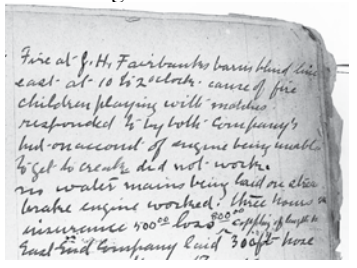 Fire at J. H. Fairbanks barns blind line
east at 10 to 2 oclock. cause of fire
children playing with matches
responded to by both Company's
but on account of engine being unable
to get to creek did not work.
no water mains being laid on
brake engine worked. three hours
insurance 500.00 loss 800.00 of
East End Company laid 300 ft hose